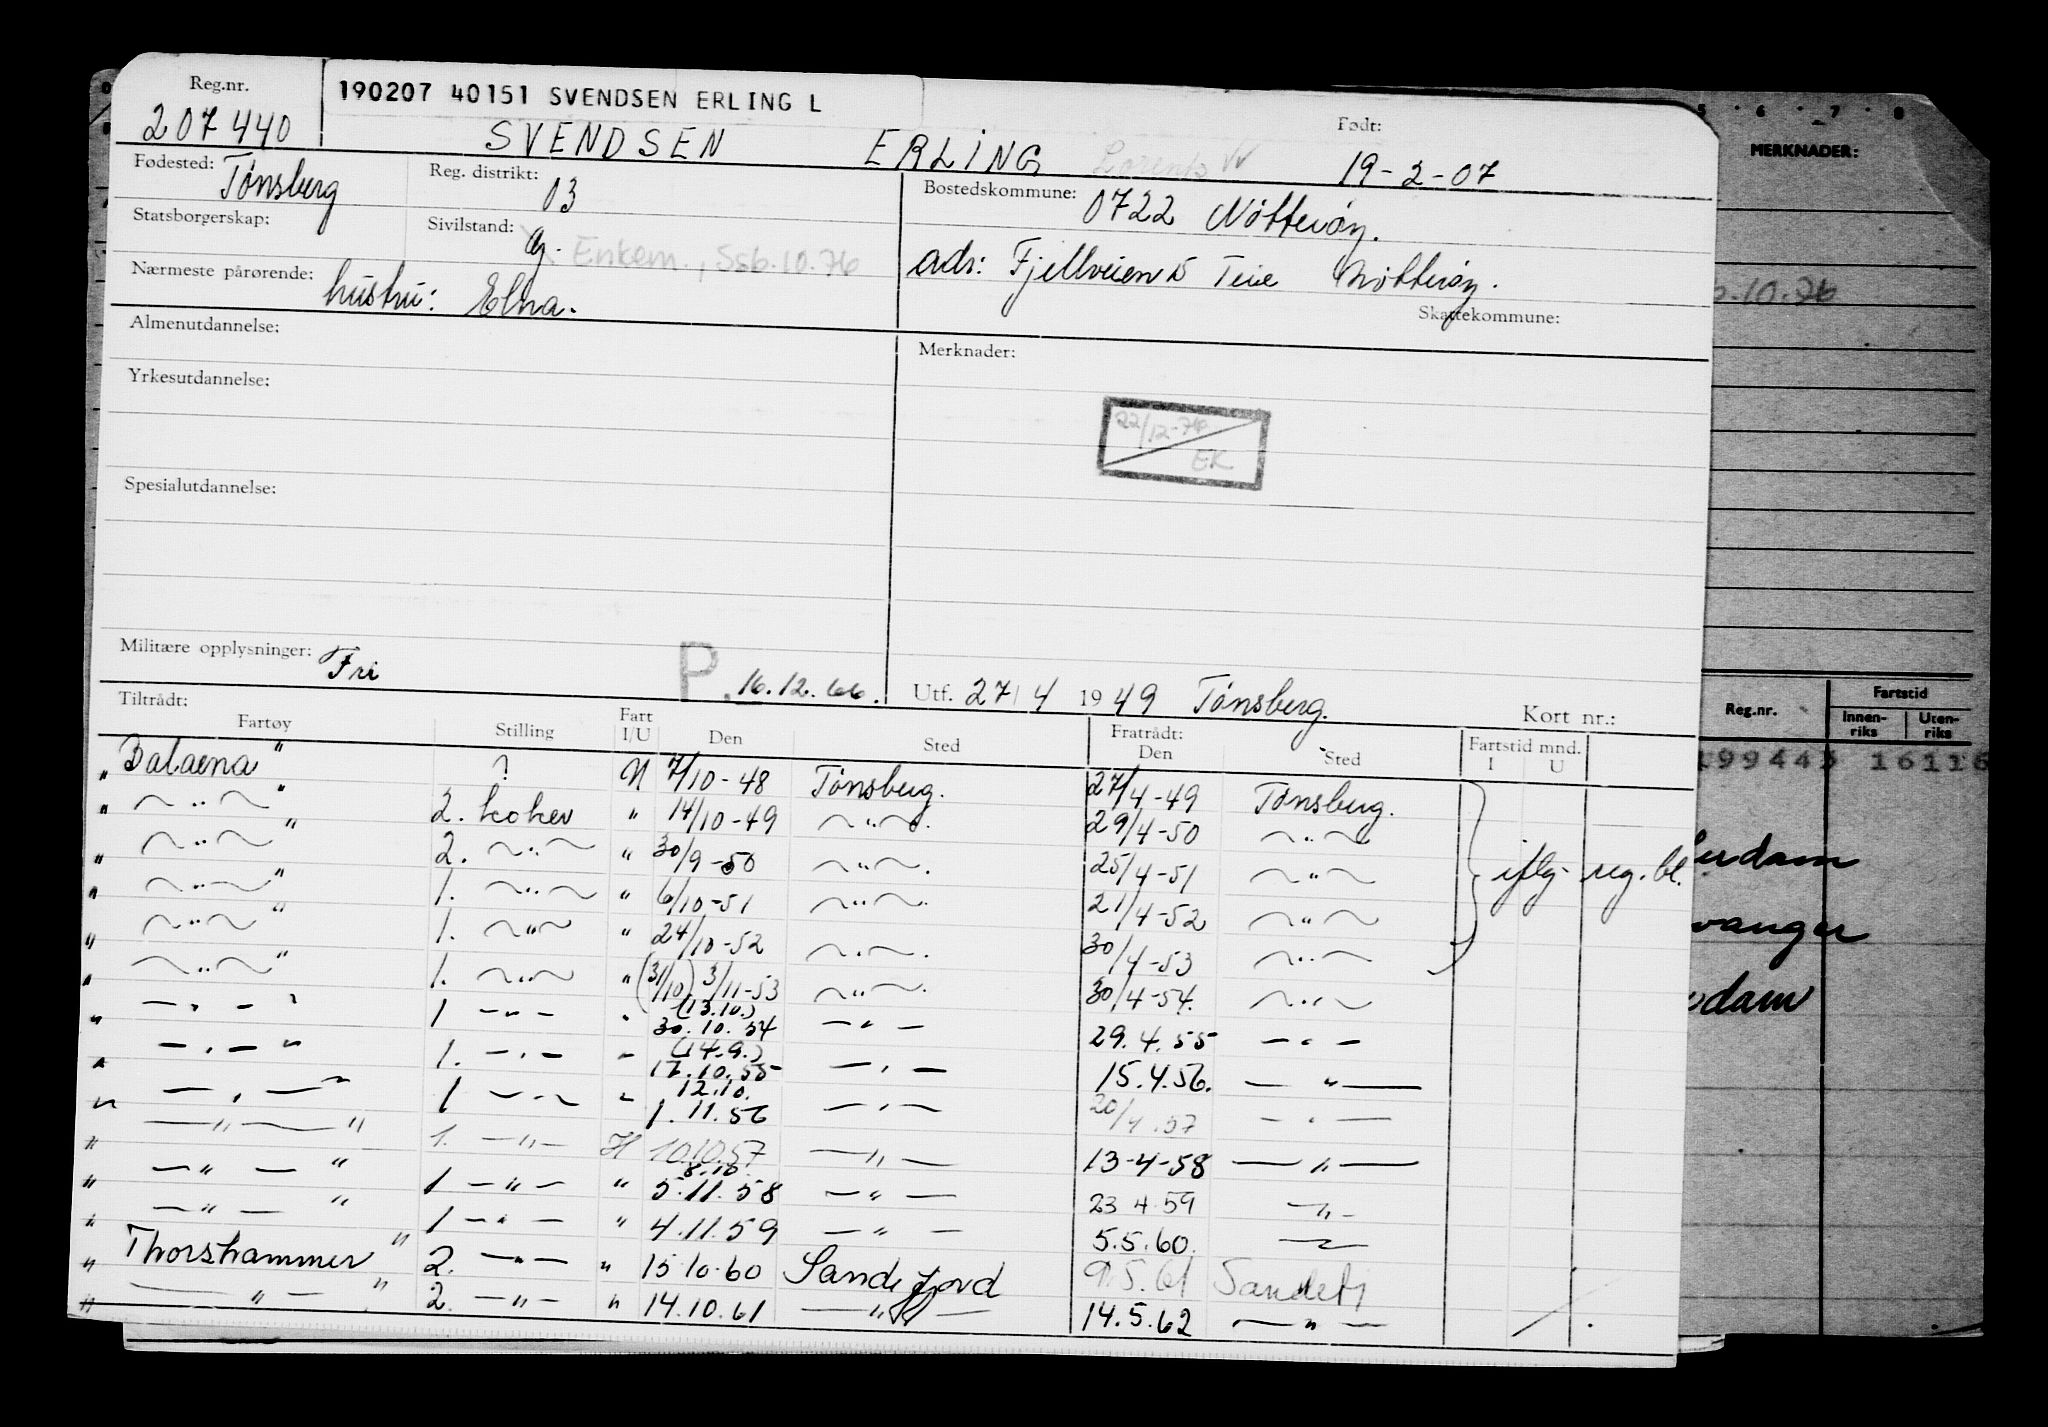 Reg.nr. 190207 40151 SVENDSEN ERLING L
207440 SVENDSEN ERLING Lorents Født: 19-2-07
Fødested: Tønsberg Reg. distrikt: 03 Bostedskommune: 0722 Nøtterøy.
Statsborgerskap: Sivilstand: g. Enkem., Ssb.10.76 adr: Fjellveien 15 Teie Nøtterøy.
Nærmeste pårørende: hustru: Elna. Skattekommune:
Almenutdannelse: Merknader:
Yrkesutdannelse:
22/12-76
EK
Spesialutdannelse:
Militære opplysninger: Fri P. 16.12.66. Utf. 27/4 1949 Tønsberg.
Tiltrådt: Fratrådt: Kort nr.:
Fartøy Stilling Fart I/U Den Sted Den Sted Fartstid mnd. I U
" Balaena" ? N 7/10-48 Tønsberg. 27/4-49 Tønsberg.
" ~"~" 2. kokev " 14/10-49 ~"~. 29/4-50 ~"~
" ~"~" 2. ~"~ " 30/9-50 ~"~. 25/4-51 ~"~ iflg. reg.bl.
" ~"~" 1. ~"~ " 6/10-51 ~"~. 21/4-52 ~"~
" ~"~" 1. ~"~ " 24/10-52 ~"~. 30/4-53 ~"~
" ~"~" 1. ~"~ " (3/10) 3/11-53 ~"~. 30/4-54. ~"~
" — " — " 1 — " — " (13.10.) 30.10.54 — " — 29.4.55 — " —
" — " — " 1. — " — " (14.9.) 17.10.55 — " — 15.4.56. — " —
" — " — " 1 — " — " 12.10. 1.11.56 — " — 20/4.57 — " —
" — " — " 1. — " — H 10.10.57 — " — 13-4-58 — " —
" — " — " 1 — " — " 8.10. 5.11.58 — " — 23 4 59 — " —
" — " — " 1 — " — " 4.11.59 — " — 5.5.60. — " —
" Thorshammer" 2. — " — " 15.10.60 Sandefjord 9.5.61 Sandefj
" — " — " 2. — " — " 14.10.61 — " — 14.5.62 — " —
5 6 7 8
MERKNADER:
.10.76
Reg.nr. Fartstid
Innen-riks Uten-riks
199443 16116